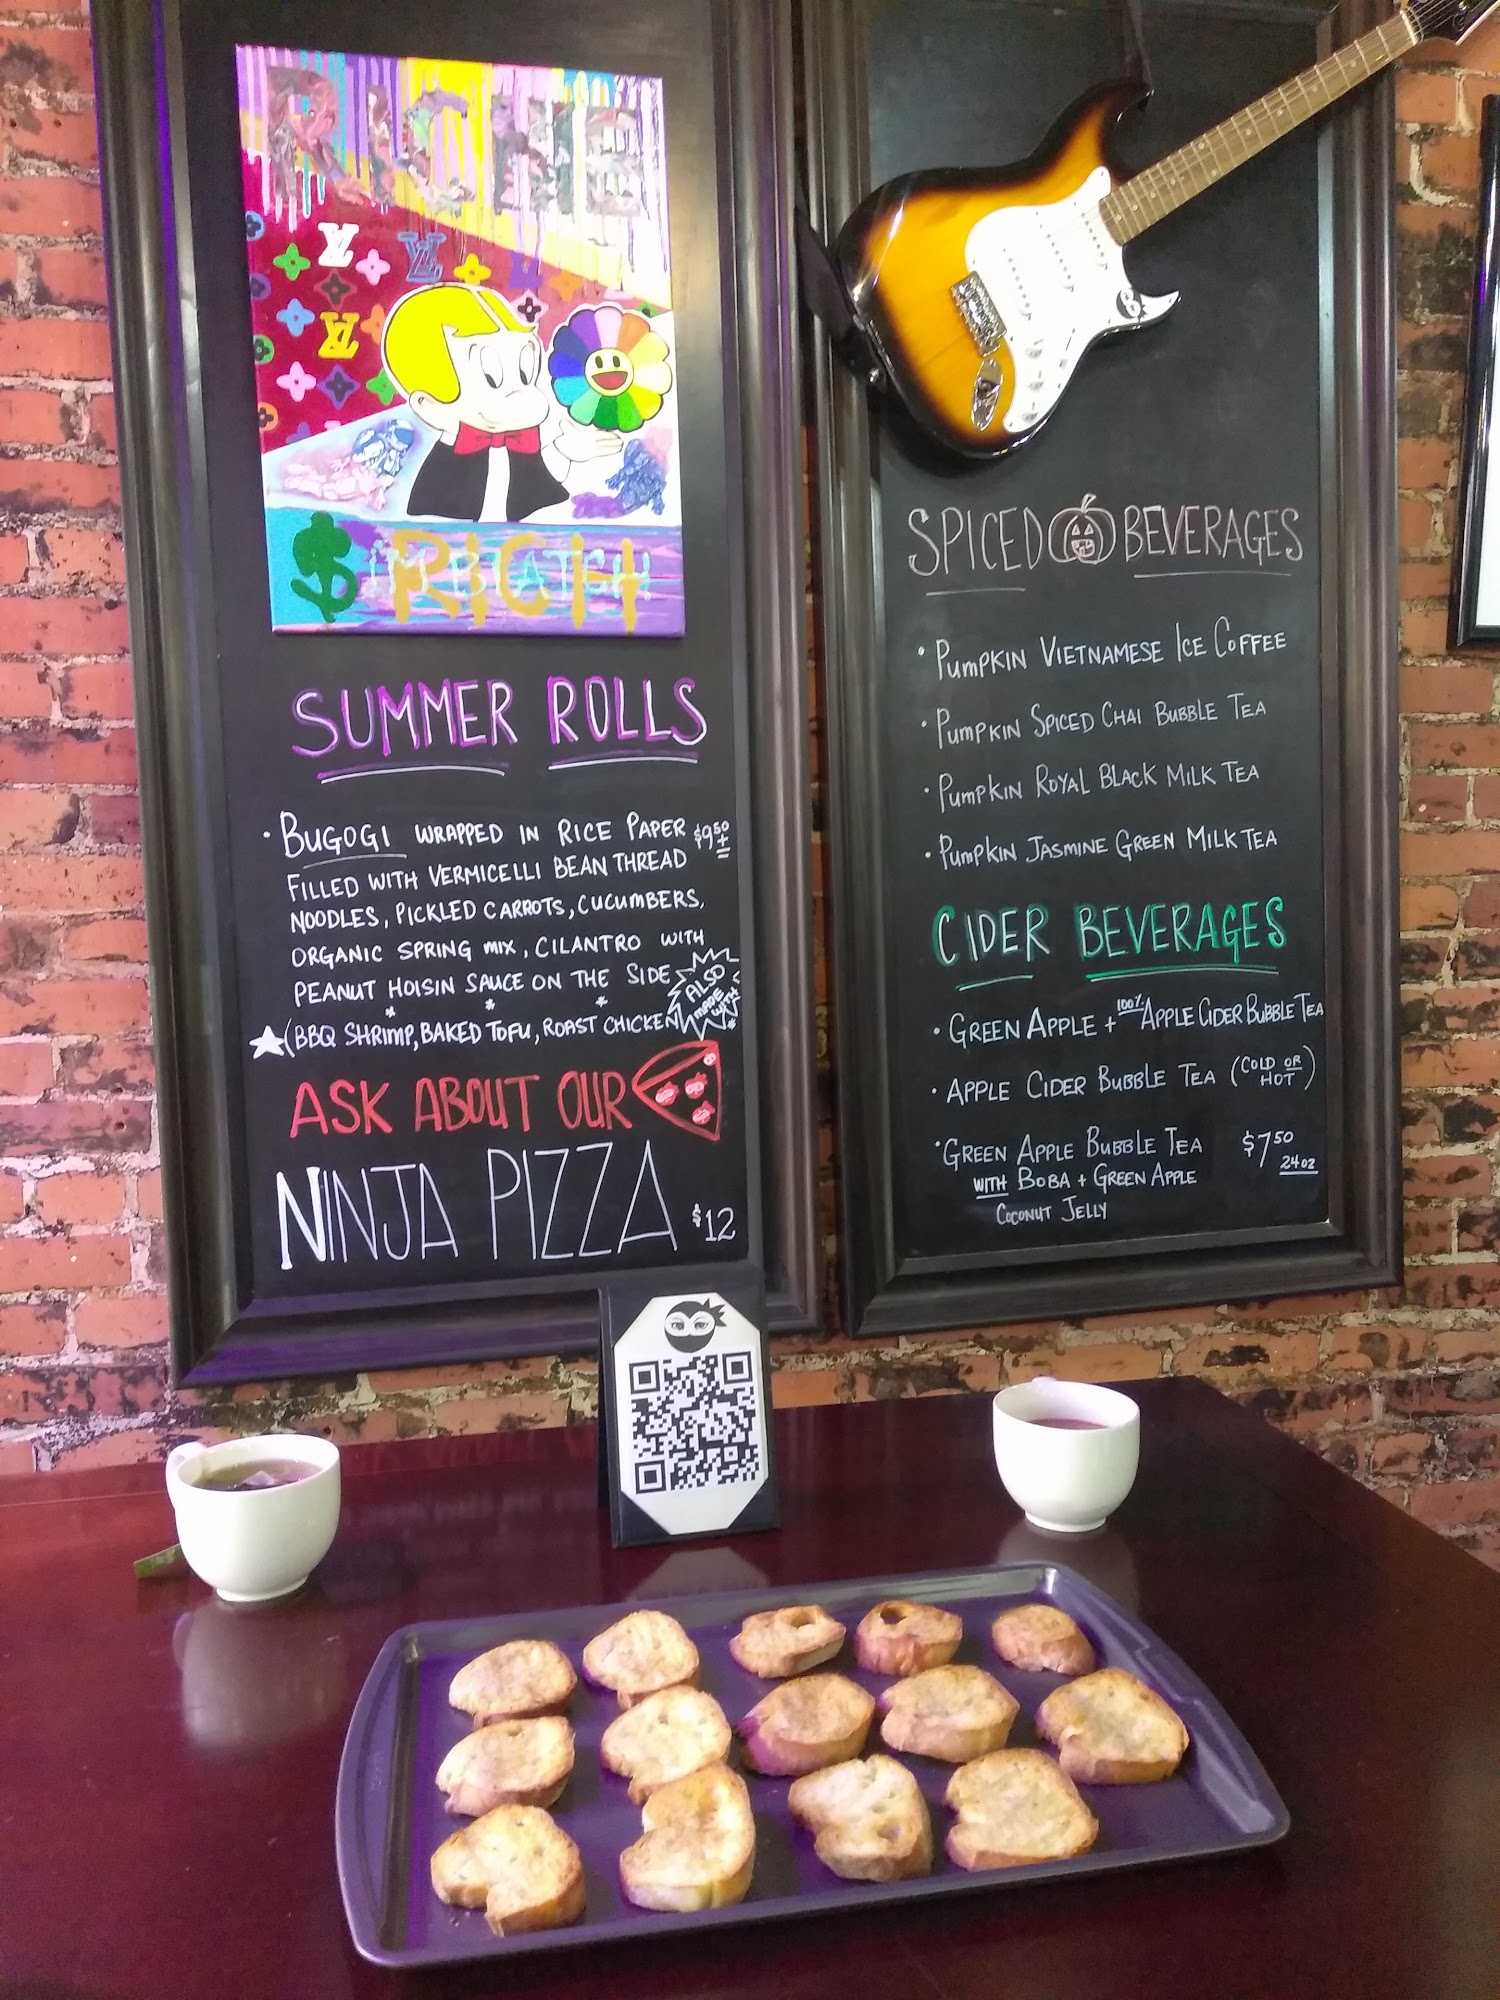 RICHIE
LV
LV
LV
$ RICH
SUMMER ROLLS
• BUGOGI WRAPPED IN RICE PAPER $9.50+
FILLED WITH VERMICELLI BEAN THREAD
NOODLES, PICKLED CARROTS, CUCUMBERS,
ORGANIC SPRING MIX, CILANTRO WITH
PEANUT HOISIN SAUCE ON THE SIDE
ALSO
MADE
WITH
(BBQ SHRIMP, BAKED TOFU, ROAST CHICKEN
ASK ABOUT OUR
NINJA PIZZA $12
SPICED BEVERAGES
• PUMPKIN VIETNAMESE ICE COFFEE
• PUMPKIN SPICED CHAI BUBBLE TEA
• PUMPKIN ROYAL BLACK MILK TEA
• PUMPKIN JASMINE GREEN MILK TEA
CIDER BEVERAGES
• GREEN APPLE + 100% APPLE CIDER BUBBLE TEA
• APPLE CIDER BUBBLE TEA (COLD OR HOT)
• GREEN APPLE BUBBLE TEA $7.50
WITH BOBA + GREEN APPLE 24oz
COCONUT JELLY